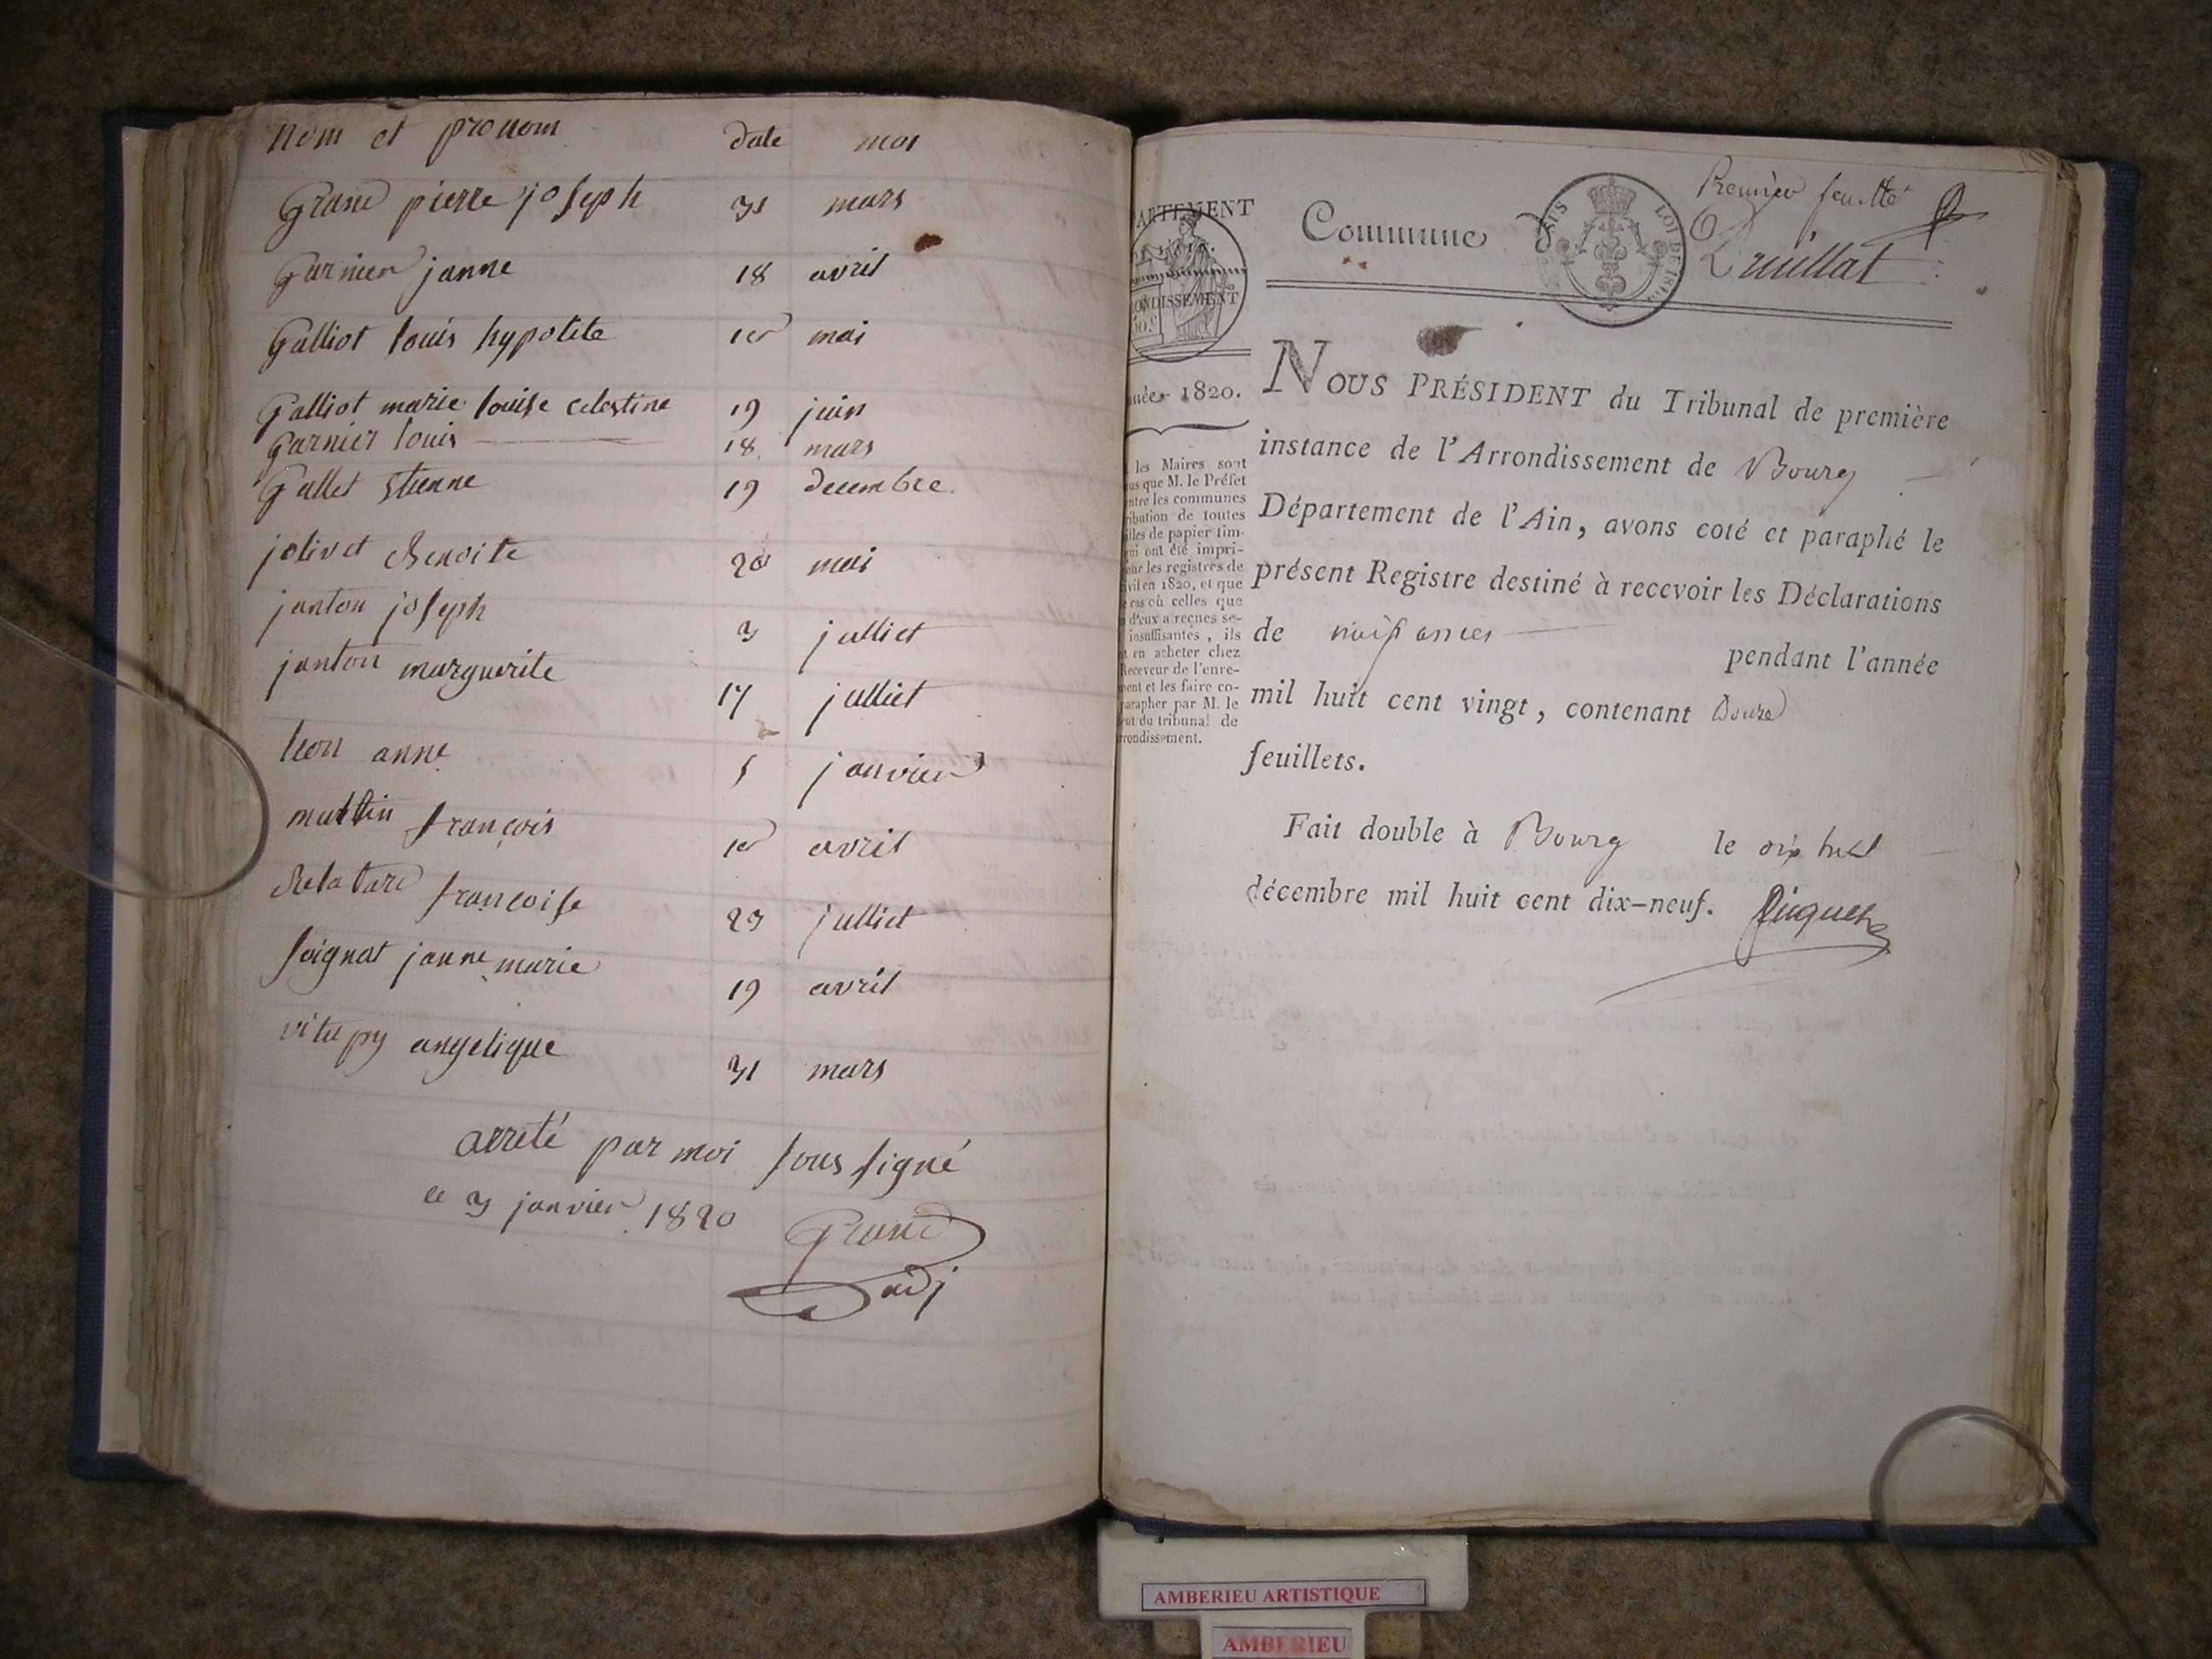 nom et prenom date moi
Grand pierre joseph 31 mars
Garnier janne 18 avril
Galliot louis hypolite 1er mai
Galliot marie louise celestine 19 juin
Garnier louis 18 mars
Gallet etienne 19 decembre
jolivet Benoite 20 mai
janton joseph 3 julliet
janton marguerite 17 julliet
leon anne 5 janvier
martin françois 1er avril
françoise 23 julliet
soignat janne marie 19 avril
vitupy angelique 31 mars
arreté par moi soussigné
le 3 janvier 1820 Grand
adj
Premier feuillet
ARTEMENT Commune Druillat
LOI DE 1816
ONDISSEMENT
50.c
née 1820.
les Maires sont
us que M. le Préfet
ntre les communes
ribution de toutes
lles de papier tim-
ui ont été impri-
our les registres de
ivil en 1820, et que
e cas où celles que
d'eux a reçues se-
insuffisantes, ils
t en acheter chez
Receveur de l'enre-
ment et les faire co-
parapher par M. le
nt du tribunal de
rrondissement.
NOUS PRÉSIDENT du Tribunal de première
instance de l'Arrondissement de Bourg
Département de l'Ain, avons coté et paraphé le
présent Registre destiné à recevoir les Déclarations
de naissances pendant l'année
mil huit cent vingt, contenant Douze
feuillets.
Fait double à Bourg le dix huit
décembre mil huit cent dix-neuf.
AMBERIEU ARTISTIQUE
AMBERIEU